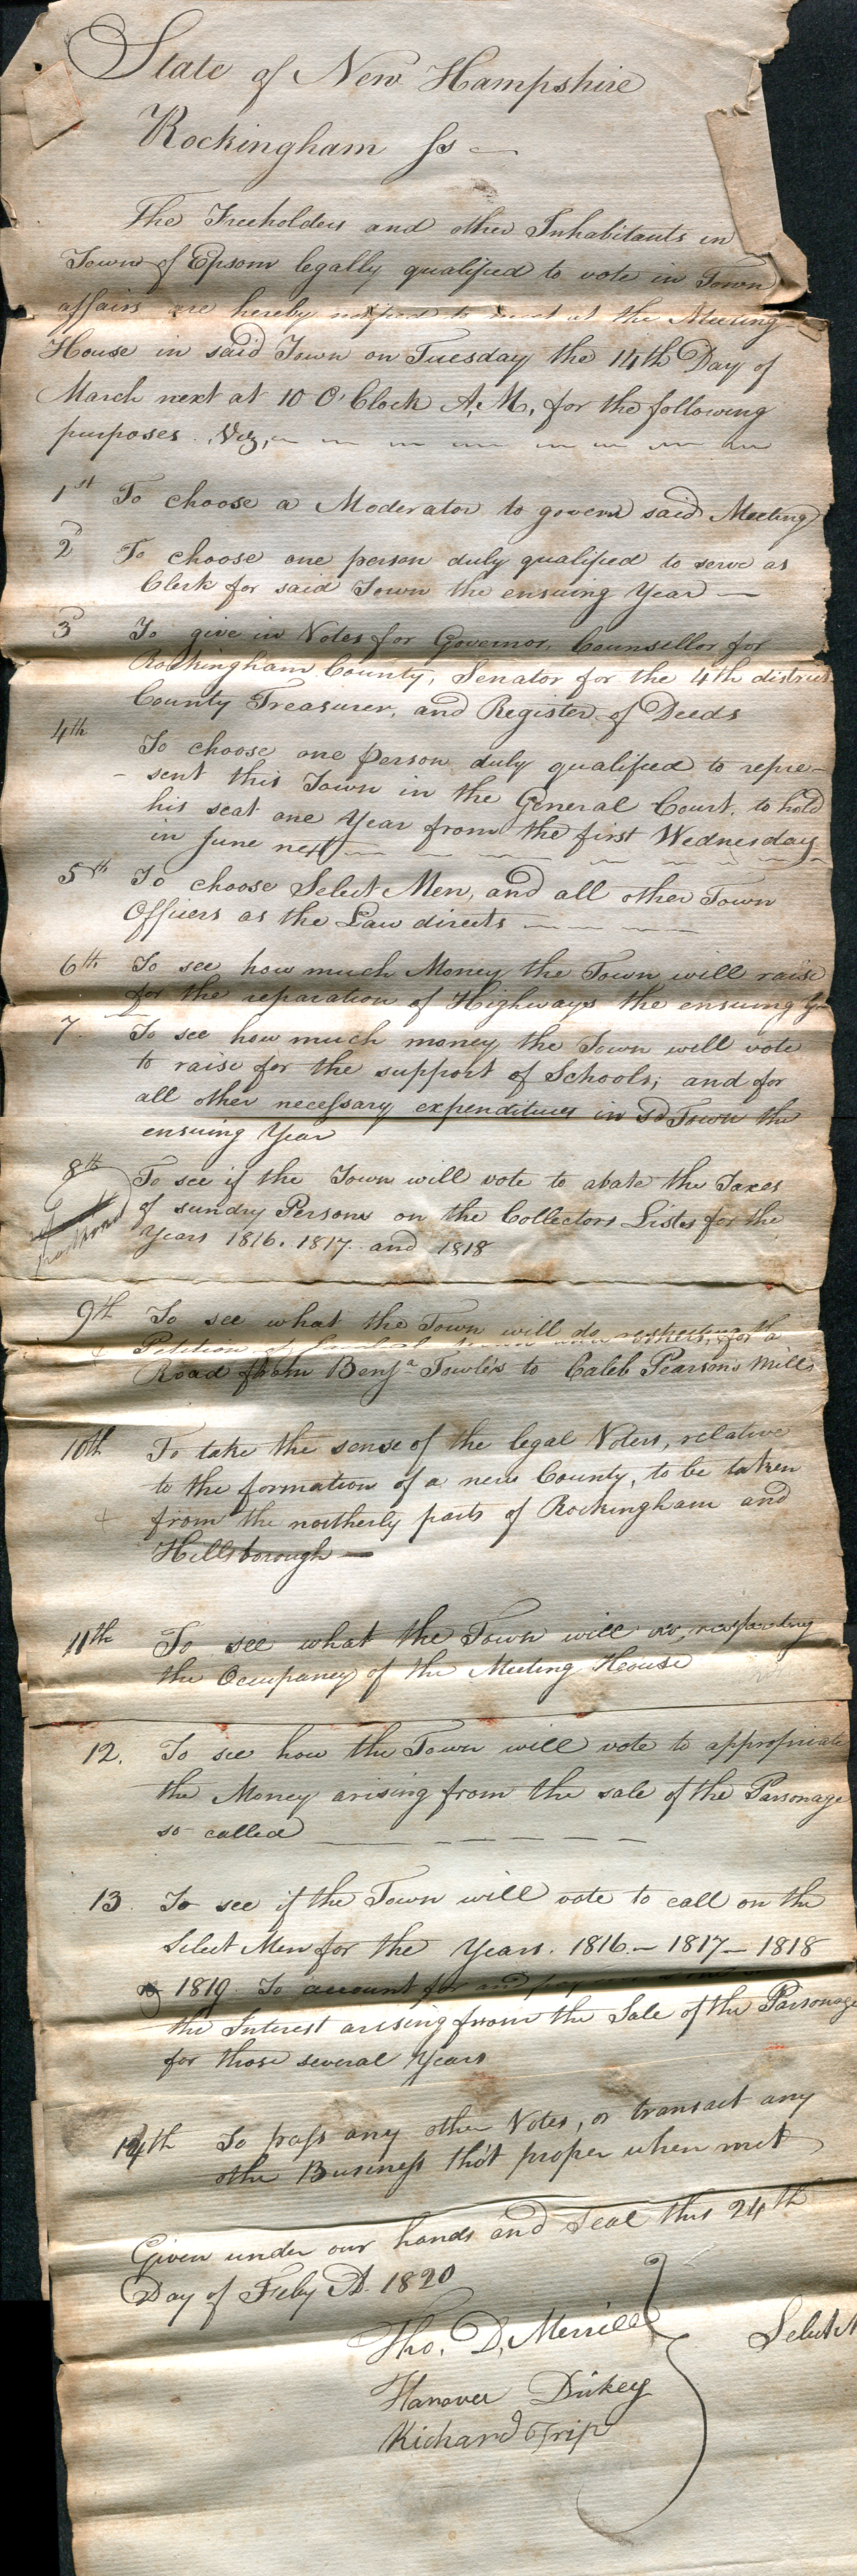 State of New Hampshire
Rockingham ss
The Freeholders and other Inhabitants in
Town of Epsom legally qualified to vote in Town
affairs are hereby notified to meet at the Meeting
House in said Town on Tuesday the 14th Day of
March next at 10 O'Clock A,M, for the following
purposes. Viz,
1st To choose a Moderator to govern said Meeting
2d To choose one person duly qualified to serve as
Clerk for said Town the ensuing Year
3d To give in Votes for Governor, Counsellor for
Rockingham County, Senator for the 4th district
County Treasurer, and Register of Deeds
4th To choose one person duly qualified to repre-
-sent this Town in the General Court, to hold
his seat one Year from the first Wednesday
in June next
5th To choose Select Men, and all other Town
Officers as the Law directs
6th To see how much Money the Town will raise
for the reparation of Highways the ensuing Y
7. To see how much money the Town will vote
to raise for the support of Schools; and for
all other necessary expenditures in sd Town the
ensuing Year
8th To see if the Town will vote to abate the Taxes
of sundry Persons on the Collectors Lists for the
Years 1816. 1817. and 1818
9th To see what the Town will do respecting the
Petition of for a
Road from Benja Towle's to Caleb Pearsons Mills
10th To take the sense of the legal Voters, relative
to the formation of a new County, to be taken
from the northerly parts of Rockingham and
Hillsborough
11th To see what the Town will do, respecting
the Occupancy of the Meeting House
12. To see how the Town will vote to appropriate
the Money arising from the sale of the Parsonage
so called
13. To see if the Town will vote to call on the
Select Men for the Years. 1816 - 1817 - 1818
& 1819. To account for and
the Interest arising from the Sale of the Parsonage
for those several Years
14th To pass any other Votes, or transact any
other Business tho't proper when met
Given under our hands and Seal this 24th
Day of Feby A. 1820
Tho. D, Merrill
Select M
Hanover Dickey
Richard Tripp